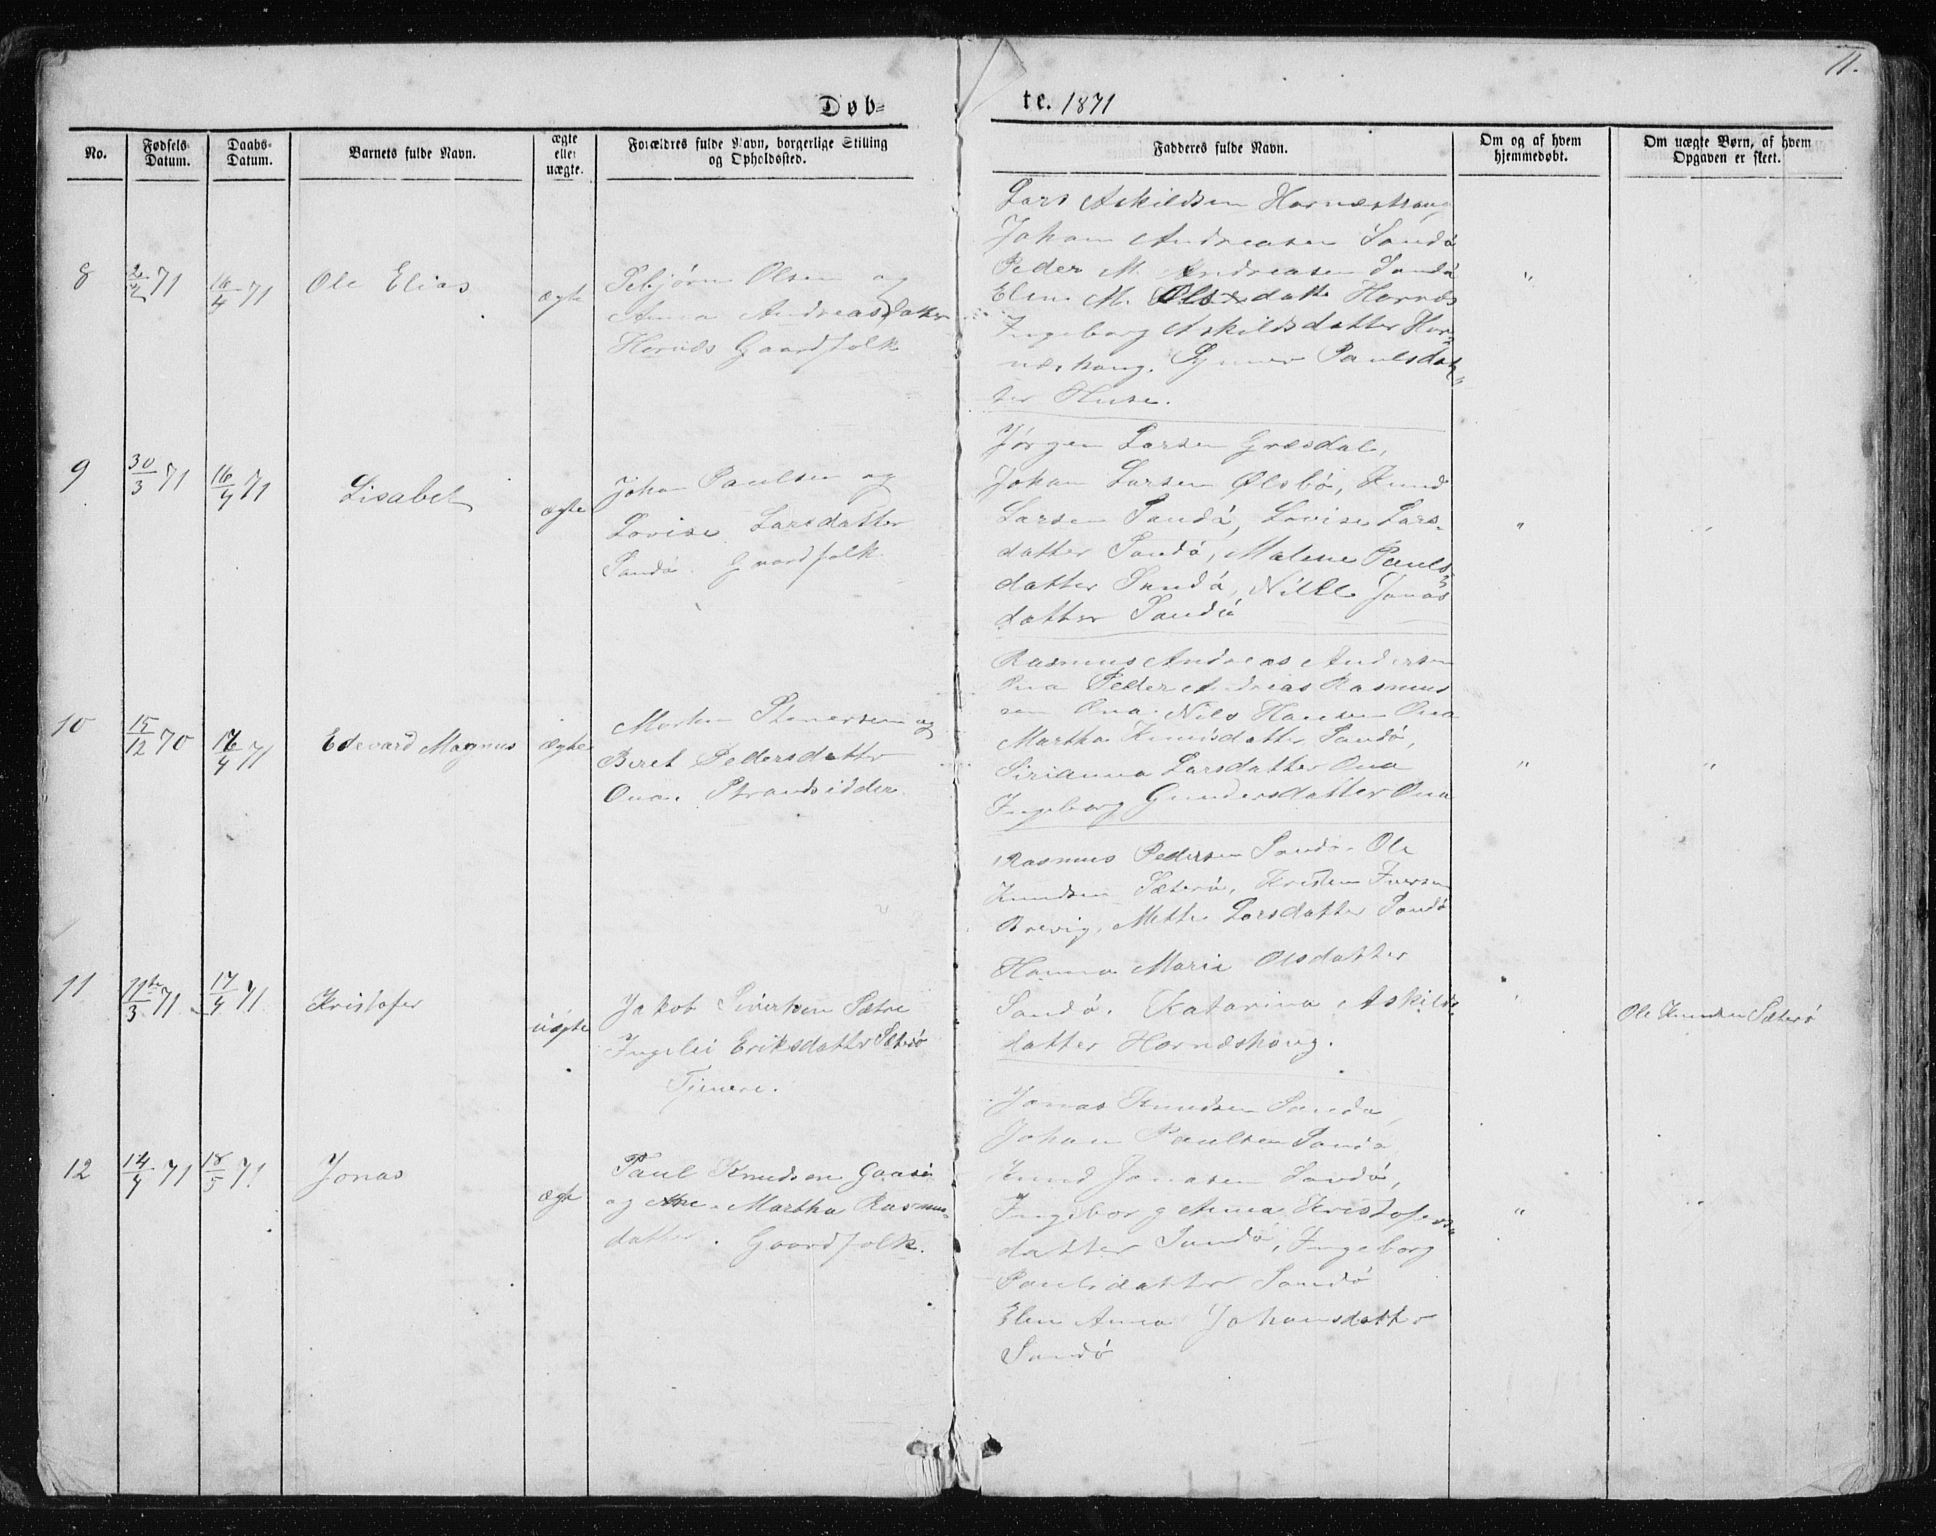 71.
Døb=
te. 1871
No.
Fødsels-
Datum.
Daabs-
Datum.
Barnets fulde Navn.
ægte
eller
uægte.
Forældres fulde Navn, borgerlige Stilling
og Opholdssted.
Fadderes fulde Navn.
Om og af hvem
hjemmedøbt.
Om uægte Børn, af hvem
Opgaven er skeet.
8
71
16/4 71
Ole Elias
ægte
Olsen og
Anna Andreasdatter
Hornæs Gaardfolk
Lars Askildsen Hornæshaug
Johan Andreasen Sandø
Peder M. Andreasen Sandø
Elen M. Olsdatte Hornæs
Ingeborg Askildsdatter Hor-
næshaug. Paulsdat-
ter Huse.
"
9
30/3 71
16/4 71
Lisabet
ægte
Johan Paulsen og
Lovise Larsdatter
Sandø. Gaardfolk
Jørgen Larsen Græsdal,
Johan Larsen Ølsbø, Knud
Larsen Sandø, Lovise Lars-
datter Sandø, Malene Pauls-
datter Sandø, Jonas
datter Sandø
"
"
10
15/12 70
16/4 71
Edevard Magnus
ægte
Morten Stenersen og
Beret Pedersdatter
Ona. Strandsidder
Rasmus Andreas Andersen
Ona Peder Andreas Rasmus
sen Ona. Nils Hansen Ona
Martha Knudsdatter Sandø,
Sirianna Larsdatter Ona
Ingeborg Gundersdatter Ona
"
"
11
11te/3 71
17/4 71
Kristofer
uægte
Jakob Sivertsen Sætre
Ingelei Eriksdatter Sæterø
Tjenere.
Rasmus Pedersen Sandø. Ole
Knudsen Sæterø, Kristen Iversen
Brevig, Mette Larsdatter Sandø
Hanna Marie Olsdatter
Sandø. Katarina Askilds-
datter Hornæshoug.
"
Ole Knudsen Sæterø
12
14/4 71
18/5 71
Jonas
ægte
Paul Knudsen Gaasø
og Ane Martha Rasmus-
datter. Gaardfolk.
Jonas Knudsen Sandø,
Johan Paulsen Sandø
Knud Jonasen Sandø,
Ingeborg Anna Kristofers-
datter Sandø, Ingeborg
Paulsdatter Sandø
Elen Anna Johansdatter
Sandø
"
"